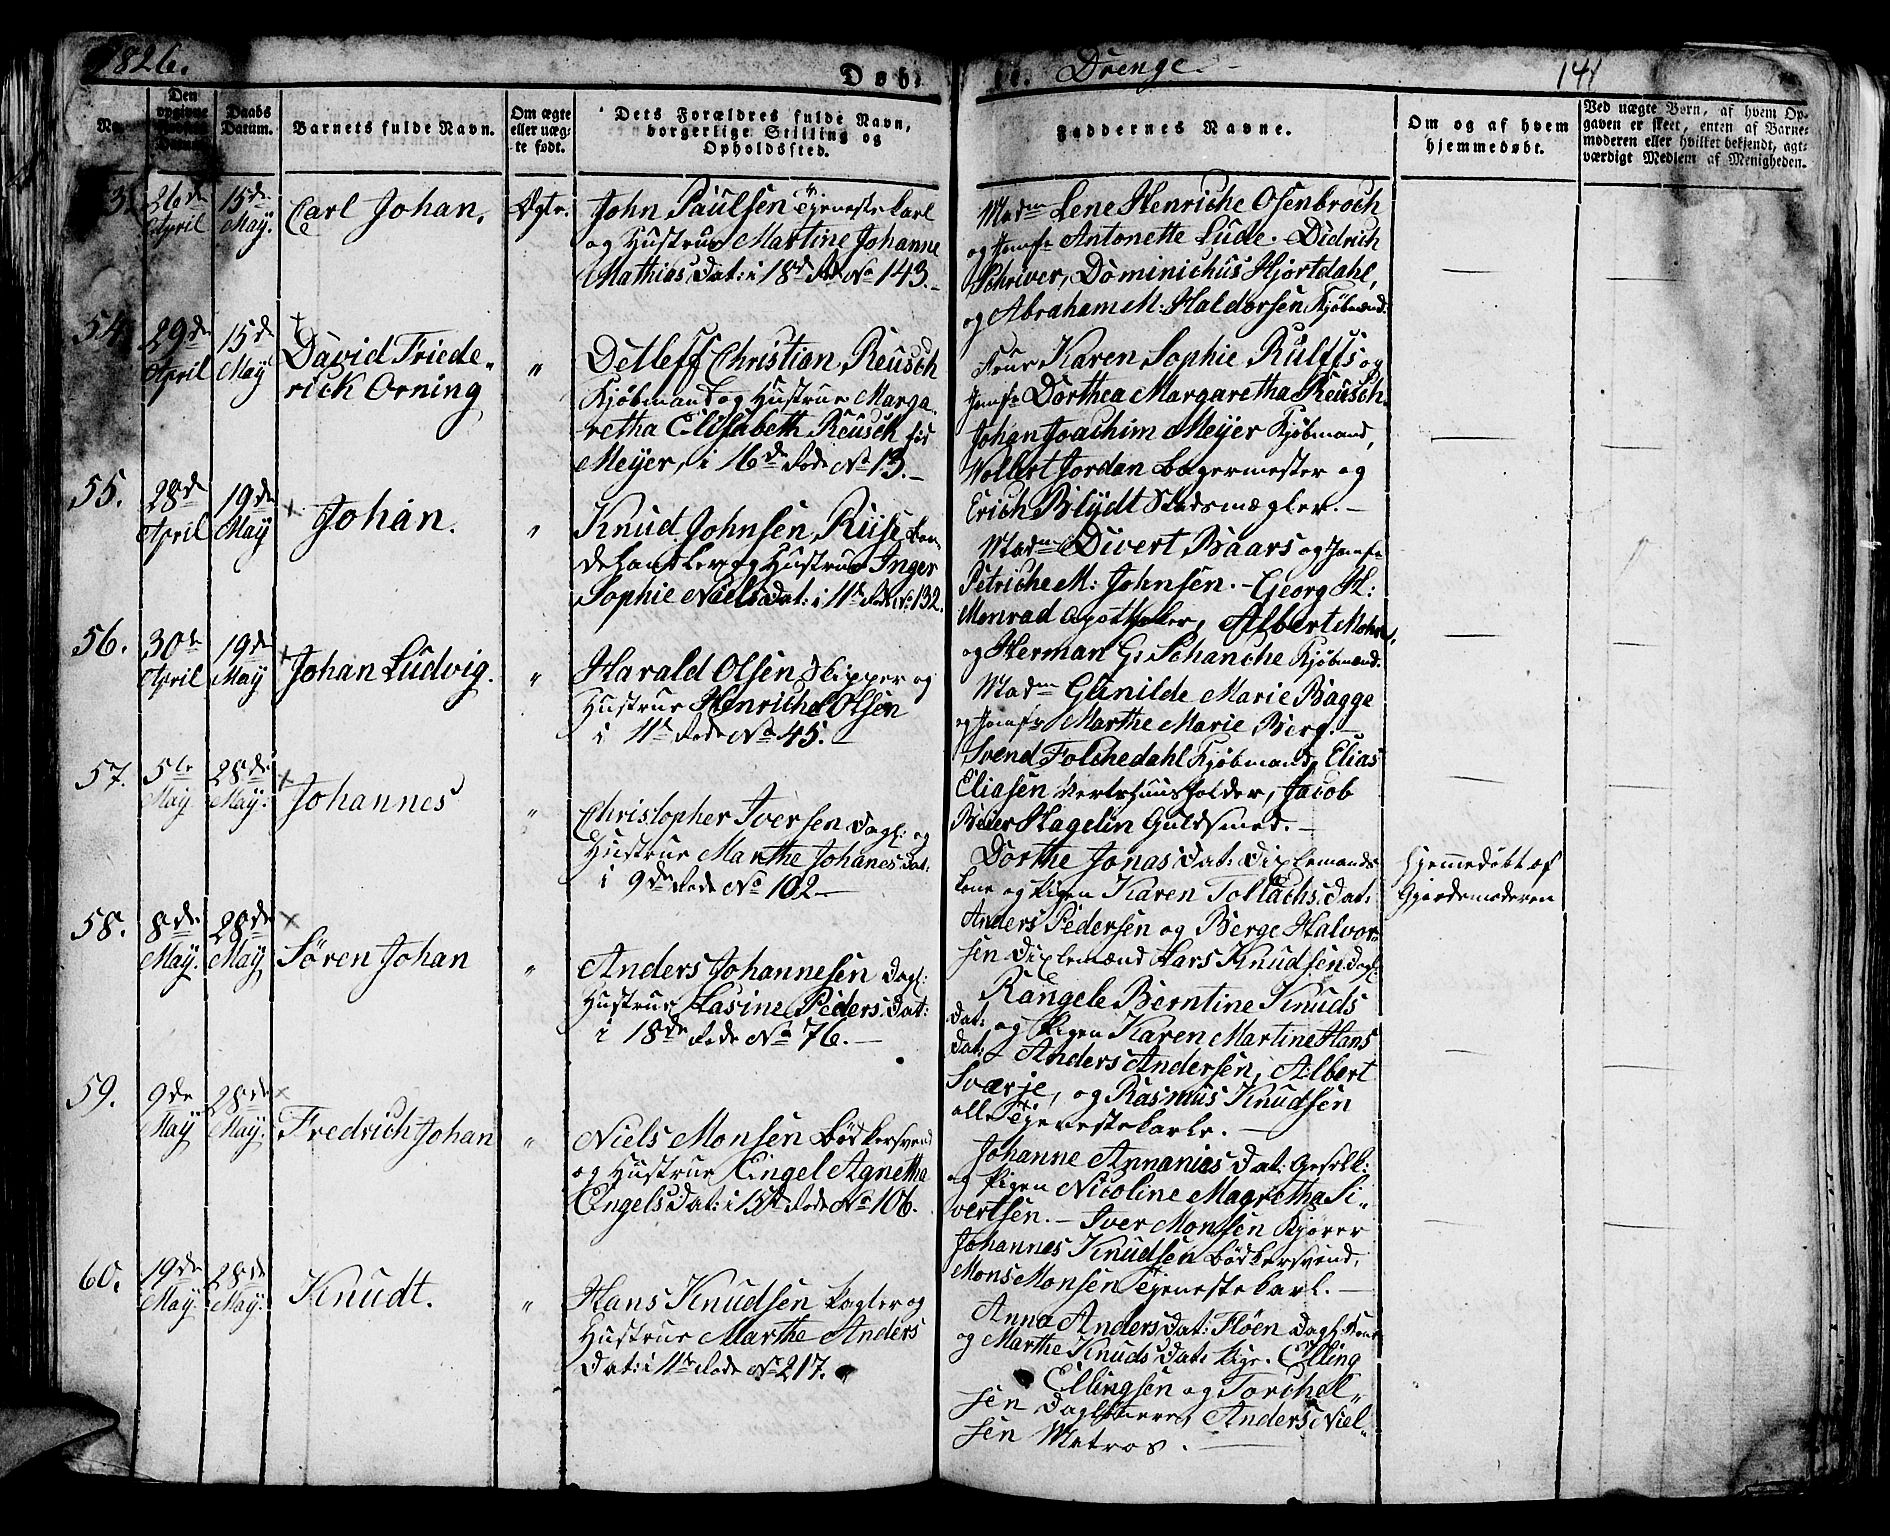 1826.
Døbte. Drenge.
141
No.
Den opgivne Fødsels Datum.
Daabs Datum.
Barnets fulde Navn.
Om ægte eller uægte født.
Dets Forældres fulde Navn, borgerlige Stilling og Opholdssted.
Faddernes Navne.
Om og af hvem hjemmedøbt.
Ved uægte Børn, af hvem Opgaven er skeet, enten af Barnemoderen eller hvilket bekjendt, agtværdigt Medlem af Menigheden.
53.
26de April
15de May.
Carl Johan.
Ægte.
John Paulsen Tjenestekarl
og Hustrue Martine Johanne
Mathias Dat: i 18de Rode No 143.
Madm Lene Henriche Osenbroch
og Jomfr Antonette Lude. Didrich
Schriver, Dominichus Hjortdahl,
og Abraham M. Haldorsen Kjøbmænd.
54.
29de April
15de May
David Friede-
rick Orning
"
Detleff Christian Reusch
Kjøbmand og Hustrue Marga-
retha Elisabeth Reusch fød
Meyer, i 16de Rode No 13.
Frue Karen Sophie Rulffs og
Jomfr Dorthea Margaretha Reusch.
Johan Joachim Meyer Kjøbmand,
Wollert Jordan Bagermester og
Erich Blydt Stadsmægler.
55.
28de April
19de May
Johan.
"
Knud Johnsen Riise
Hustrue Inger
Sophie Niels Dat: i 11te Rode No 132.
Madm Divert Baars og Jomfr
Petriche M: Johnsen. Georg H:
Monrad Apotheker, Albert Mohn
og Herman G. Schanche Kjøbmænd.
56.
30te April
19de May
Johan Ludvig.
"
Harald Olsen Skipper og
Hustrue Henriche Olsen
i 11te Rode No 45.
Madm Gunilde Marie Bagge
og Jomfr Marthe Marie Berg.
Svend Folchedahl Kjøbmand, Elias
Eliasen Vertshuusholder, Jacob
Beder Hagelin Guldsmed.
57.
5te May
28de May.
Johannes
"
Christopher Iversen Dagl: og
Hustrue Marthe Johanes Dat:
i 9de Rode No 102
Dorthe Jonas Dat: Diplemands
Kone og Pigen Karen Tollachs Dat:
Anders Pedersen og Berge Halvor-
sen Diplemænd Lars Knudsen Dagl:
Hjemmedøbt af
Gjordemoderen
58.
8de May.
28de May
Søren Johan
"
Anders Johannesen Dagl:
Hustrue Lasine Peders Dat:
i 18de Rode No 76.
Rangele Berntine Knuds
Dat: og Pigen Karen Martine Hans
Dat: Anders Andersen, Albert
Sværje, og Rasmus Knudsen
alle Tjenestekarle.
59.
9de May
28de May.
Fredrich Johan
"
Niels Monsen Bødkersvend
og Hustrue Engel Agnetha
Engels Dat: i 15de Rode No 106.
Johanne Annanias Dat: Geselk:
og Pigen Nicoline Magretha Si-
vertsen. Iver Monsen Kjører
Johannes Knudsen Bødkersvend,
Mons Monsen Tjenestekarl.
60.
19de May.
28de May.
Knudt.
"
Hans Knudsen Pagter og
Hustrue Marthe Anders
Dat: i 11te Rode No 217.
Anna Anders Dat: Fløen Dagl: Kone
og Marthe Knuds Dat: Pige. Elling
Ellingsen og Torchel-
sen Daglønnere, Anders Niel-
sen Matros.